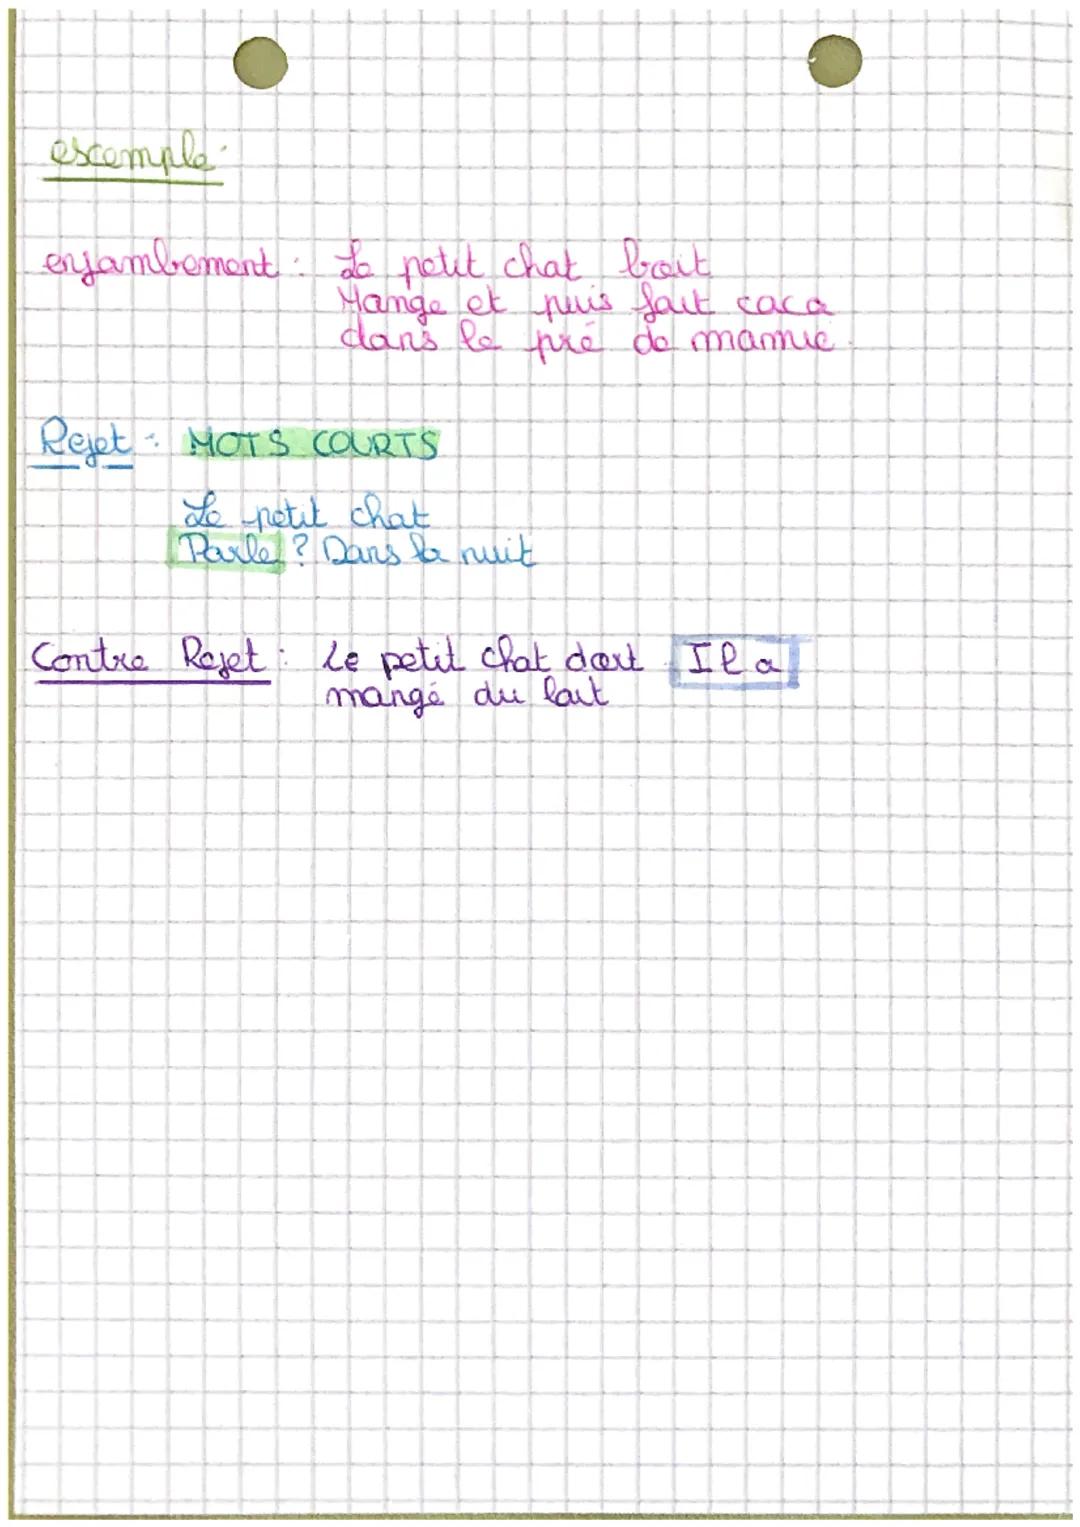 exemple:
enjambement : Le petit chat boit
Mange et puis fait caca
dans le pré de mamie.
Rejet : MOTS COURTS
Le petit chat
Parle ? Dans la nuit
Contre Rejet : Le petit chat dort Il a
mangé du lait